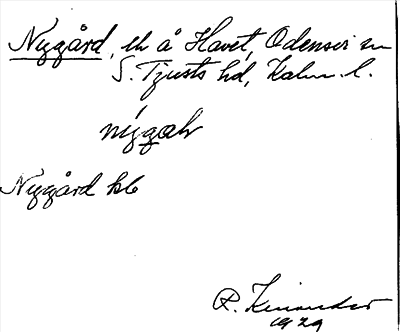 Nygård, th å Havet, Odensvi sn
S. Tjusts hd, Kalm. l.
nýgaḷ
Nygård kb
R. Kinander
1929